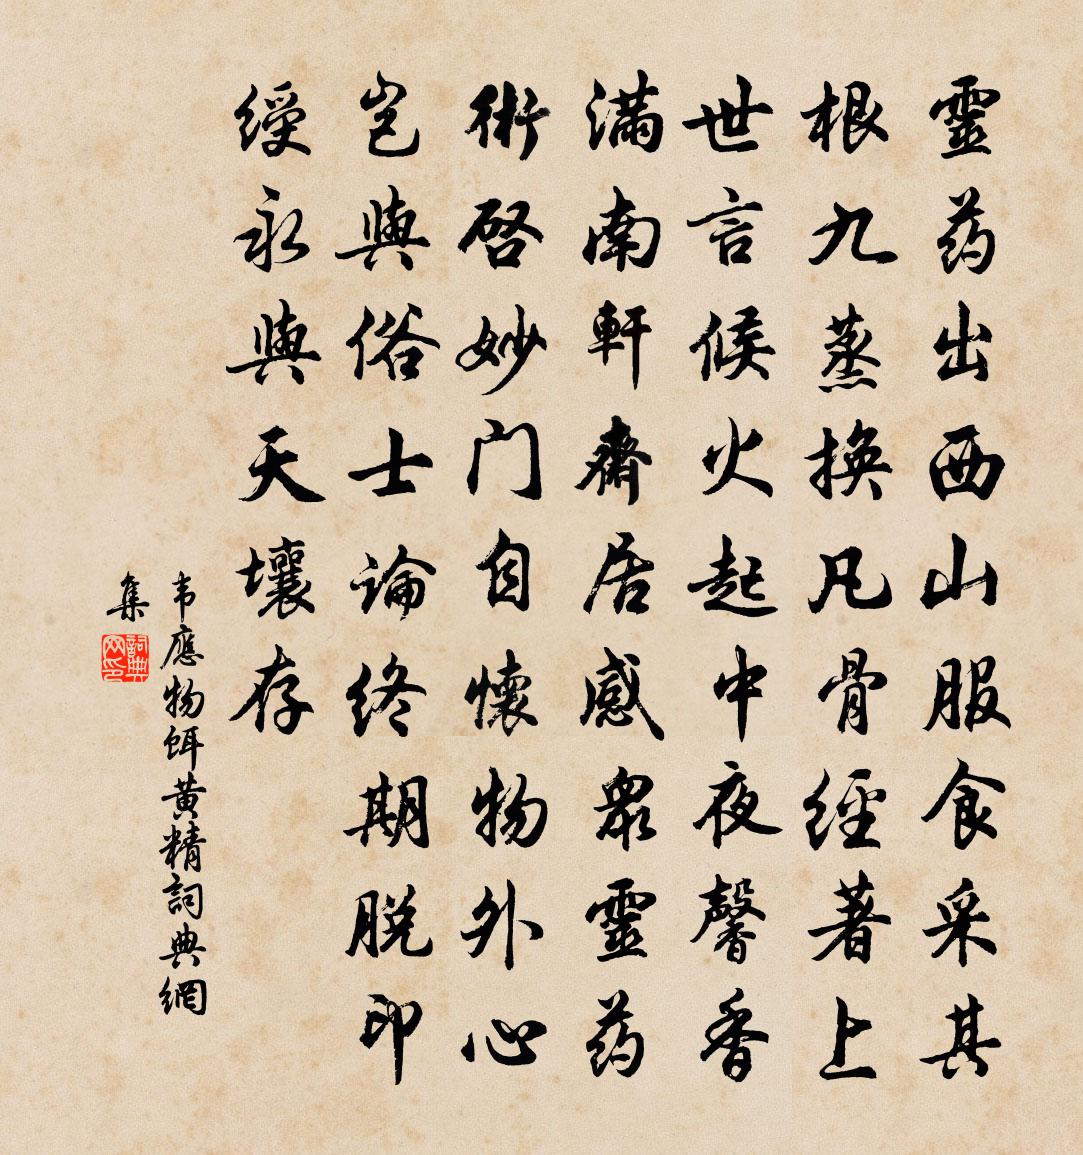 靈药出西山服食采其
根九蒸換凡骨經著上
世言候火起中夜馨香
满南軒齋居感衆靈药
術啓妙门自懷物外心
岂與俗士論终期脱印
綬永與天壤存
韦應物餌黄精詞典網
集
詞典网印